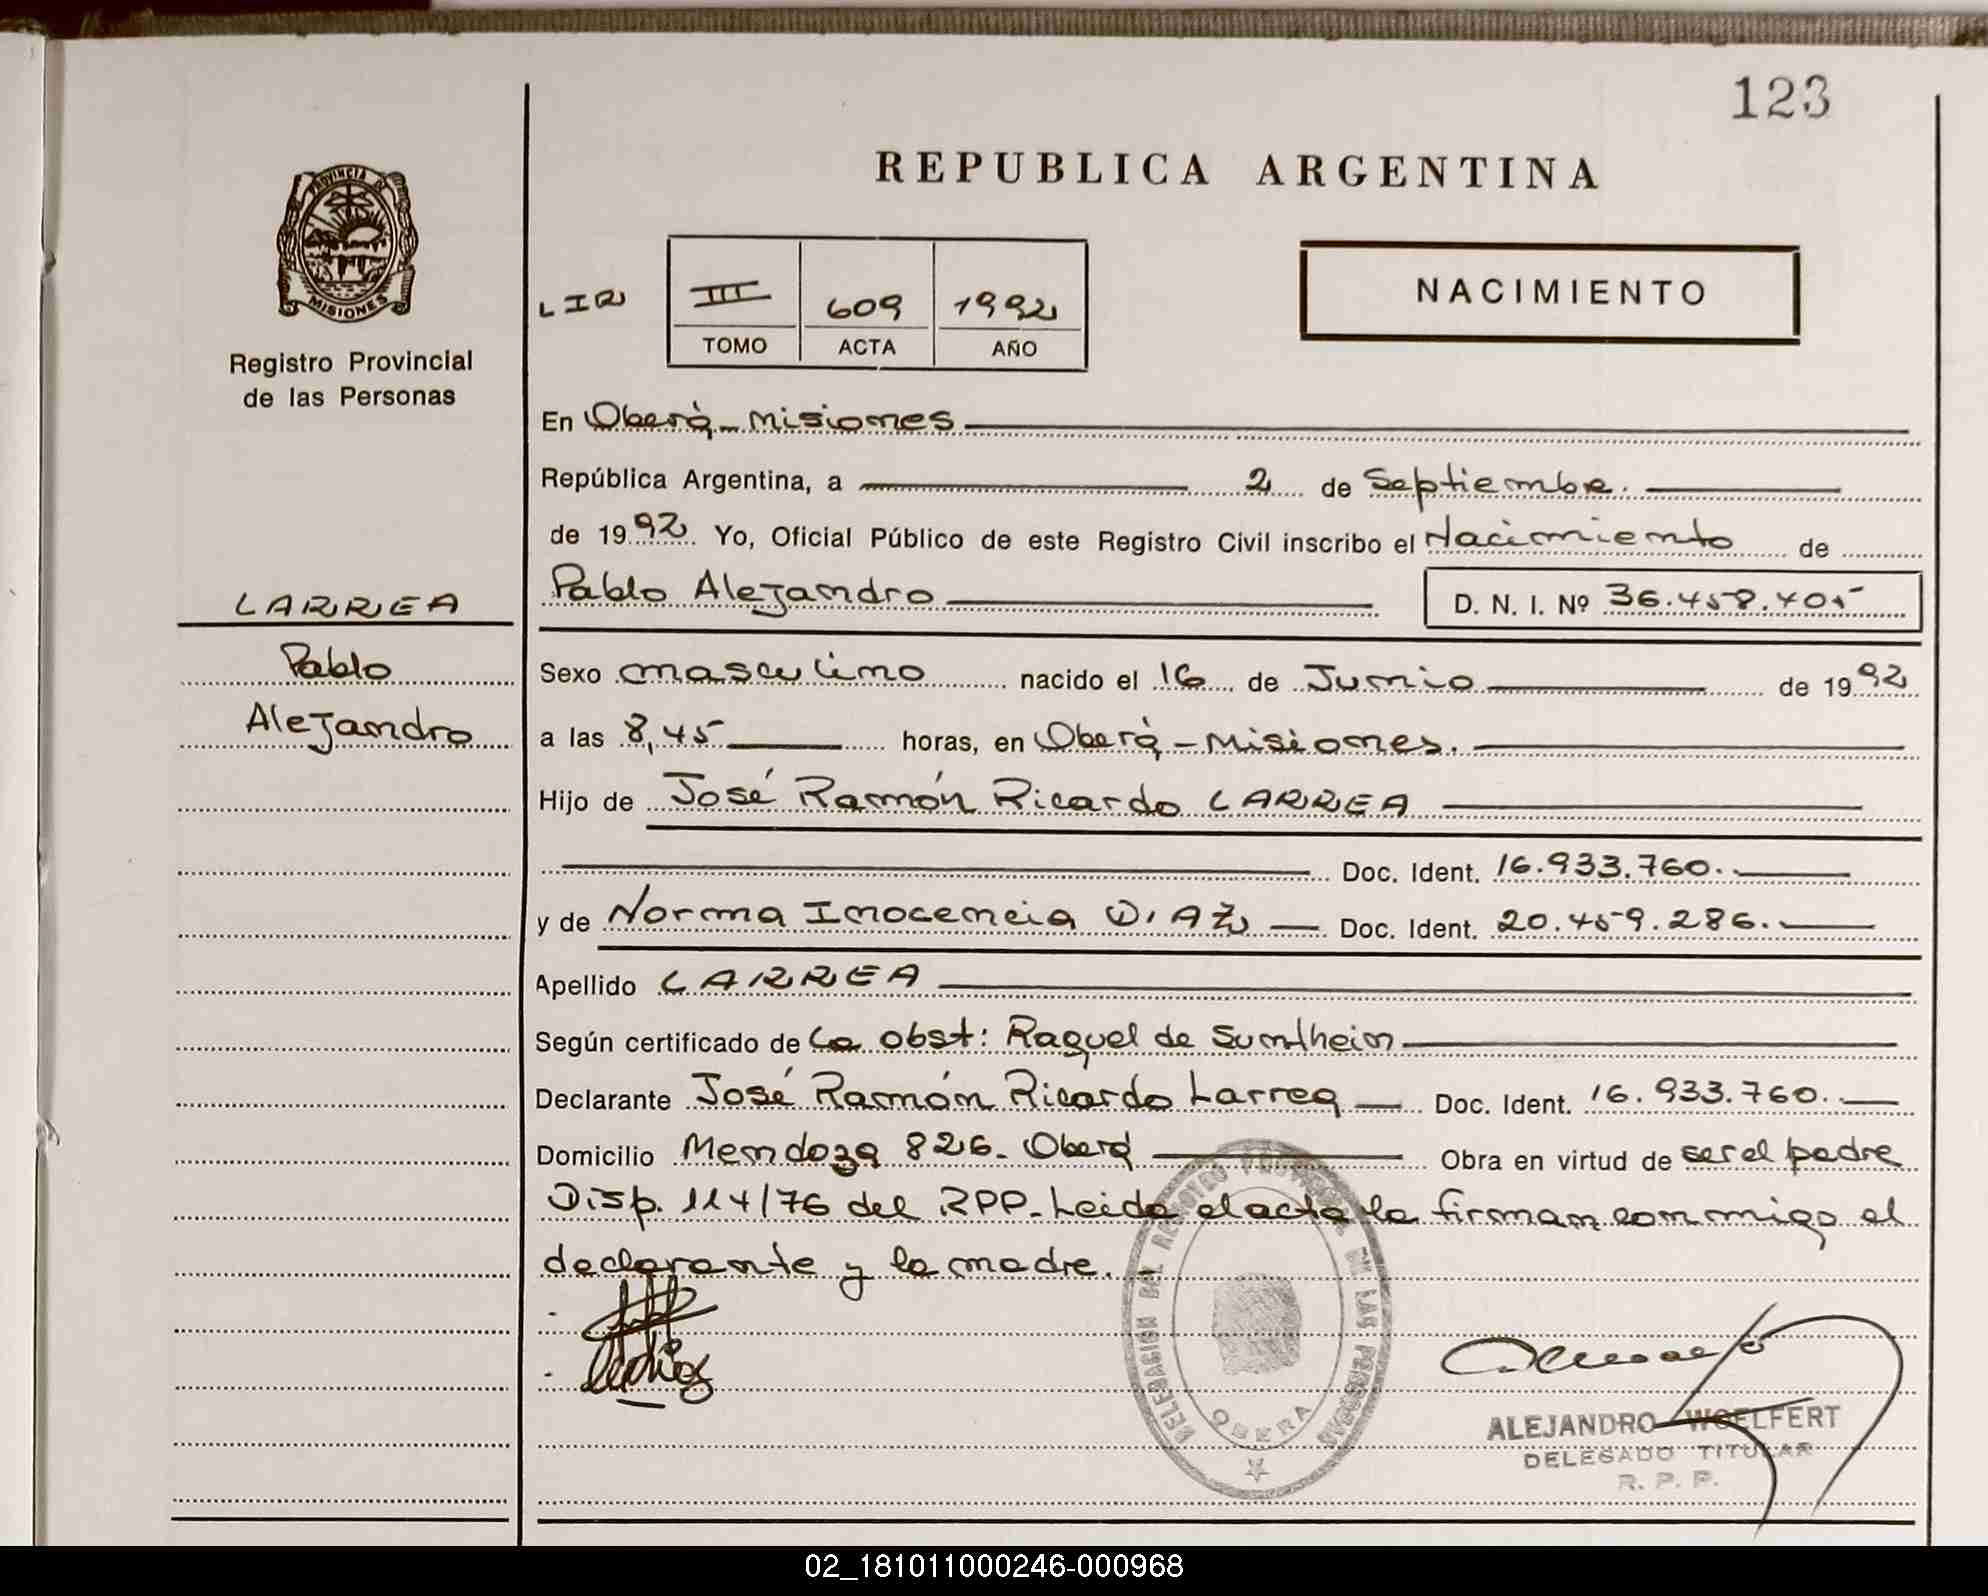 123
REPUBLICA ARGENTINA
PROVINCIA DE
MISIONES
Registro Provincial
de las Personas
NACIMIENTO
III 609 1992
TOMO ACTA AÑO
En Oberá - Misiones
República Argentina, a 2 de Septiembre.
de 1992 Yo, Oficial Público de este Registro Civil inscribo el Nacimiento de
Pablo Alejandro D. N. I. Nº 36.458.405
LARREA
Pablo
Alejandro
Sexo masculino nacido el 16 de Junio de 1992
a las 8,45 horas, en Oberá - Misiones.
Hijo de José Ramón Ricardo LARREA
Doc. Ident. 16.933.760.
y de Norma Inocencia DIAZ Doc. Ident. 20.459.286.
Apellido LARREA
Según certificado de La obst: Raquel de
Declarante José Ramón Ricardo Larrea Doc. Ident. 16.933.760.
Domicilio Mendoza 826. Oberá Obra en virtud de ser el padre
Disp. 114/76 del RPP. Leida el acta la firman conmigo el
declarante y la madre.
DELEGACION DEL REGISTRO PROVINCIAL DE LAS PERSONAS
OBERA
ALEJANDRO WOELFERT
DELEGADO TITULAR
R. P. P.
02_181011000246-000968